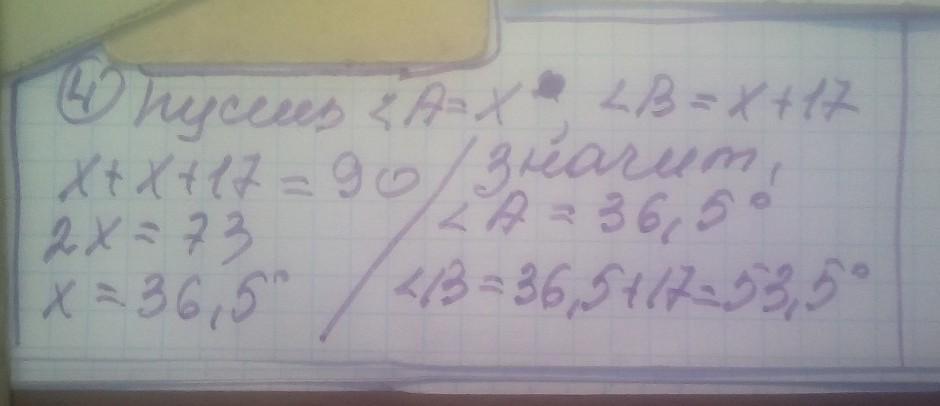 ④ Пусть ∠A=x°, ∠B=x+17
x+x+17=90
2x=73
x=36,5°
Значит,
∠A=36,5°
∠B=36,5+17=53,5°